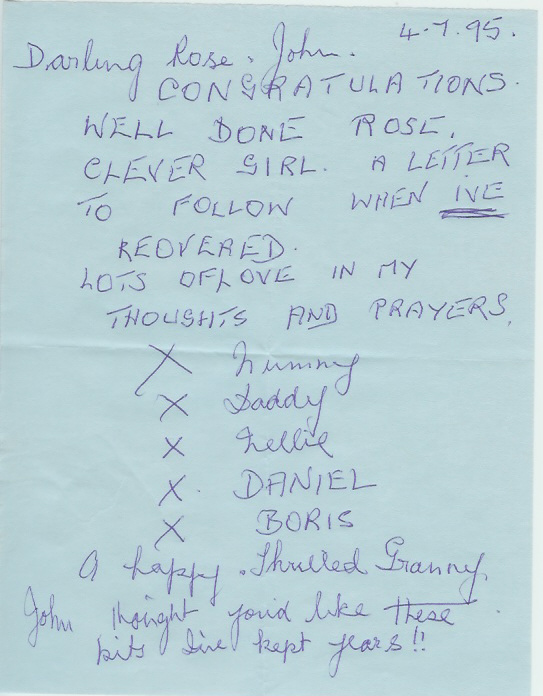 4.7.95.
Darling Rose. John.
CONGRATULATIONS.
WELL DONE ROSE,
CLEVER GIRL. A LETTER
TO FOLLOW WHEN IVE
REOVERED.
LOTS OF LOVE IN MY
THOUGHTS AND PRAYERS,
X Mummy
X Daddy
X Nellie
X. DANIEL
X BORIS
A happy. Thrilled Granny
John thought you'd like these
bits I've kept years!!